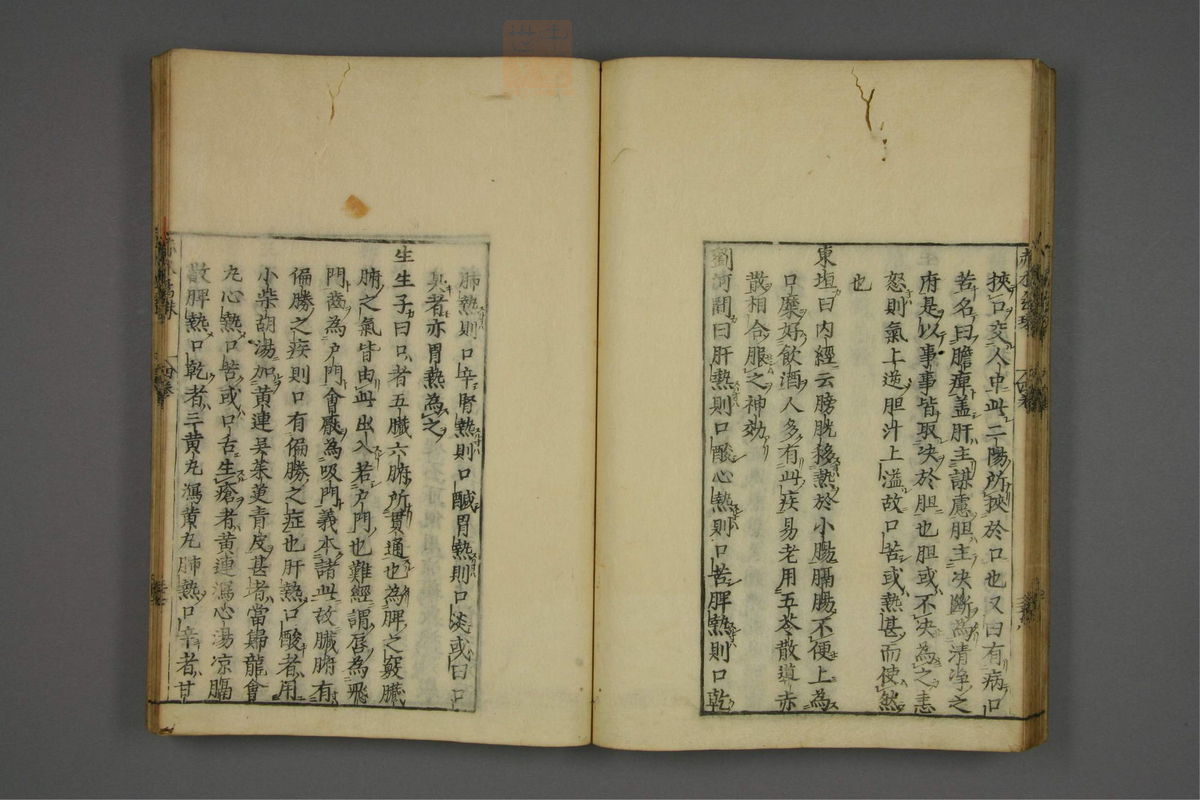 挾口交人中此二陽所挾於口也又曰有病口
苦名曰膽痺盖肝主謀慮胆主决斷為清净之
府是以事事皆取决於胆也胆或不决為之恚
怒則氣上逆胆汁上溢故口苦或熱甚而使然
也
東垣曰内經云膀胱移熱於小腸膈腸不便上為
口糜好飲酒人多有此疾易老用五苓散導赤
散相合服之神效
劉河間曰肝熱則口酸心熱則口苦脾熱則口乾
肺熱則口辛腎熱則口鹹胃熱則口淡或曰口
臭者亦胃熱為之
生生子曰口者五臟六腑所貫通也為脾之竅臟
腑之氣皆由此出入若户門也難經謂唇為飛
門齒為户門會厭為吸門義本諸此故臓腑有
偏勝之疾則口有偏勝之症也肝熱口酸者用
小柴胡湯加黄連吴茱萸青皮甚者當歸龍會
丸心熱口苦或口舌生瘡者黄連瀉心湯凉膈
散脾熱口乾者三黄丸瀉黄丸肺熱口辛者甘